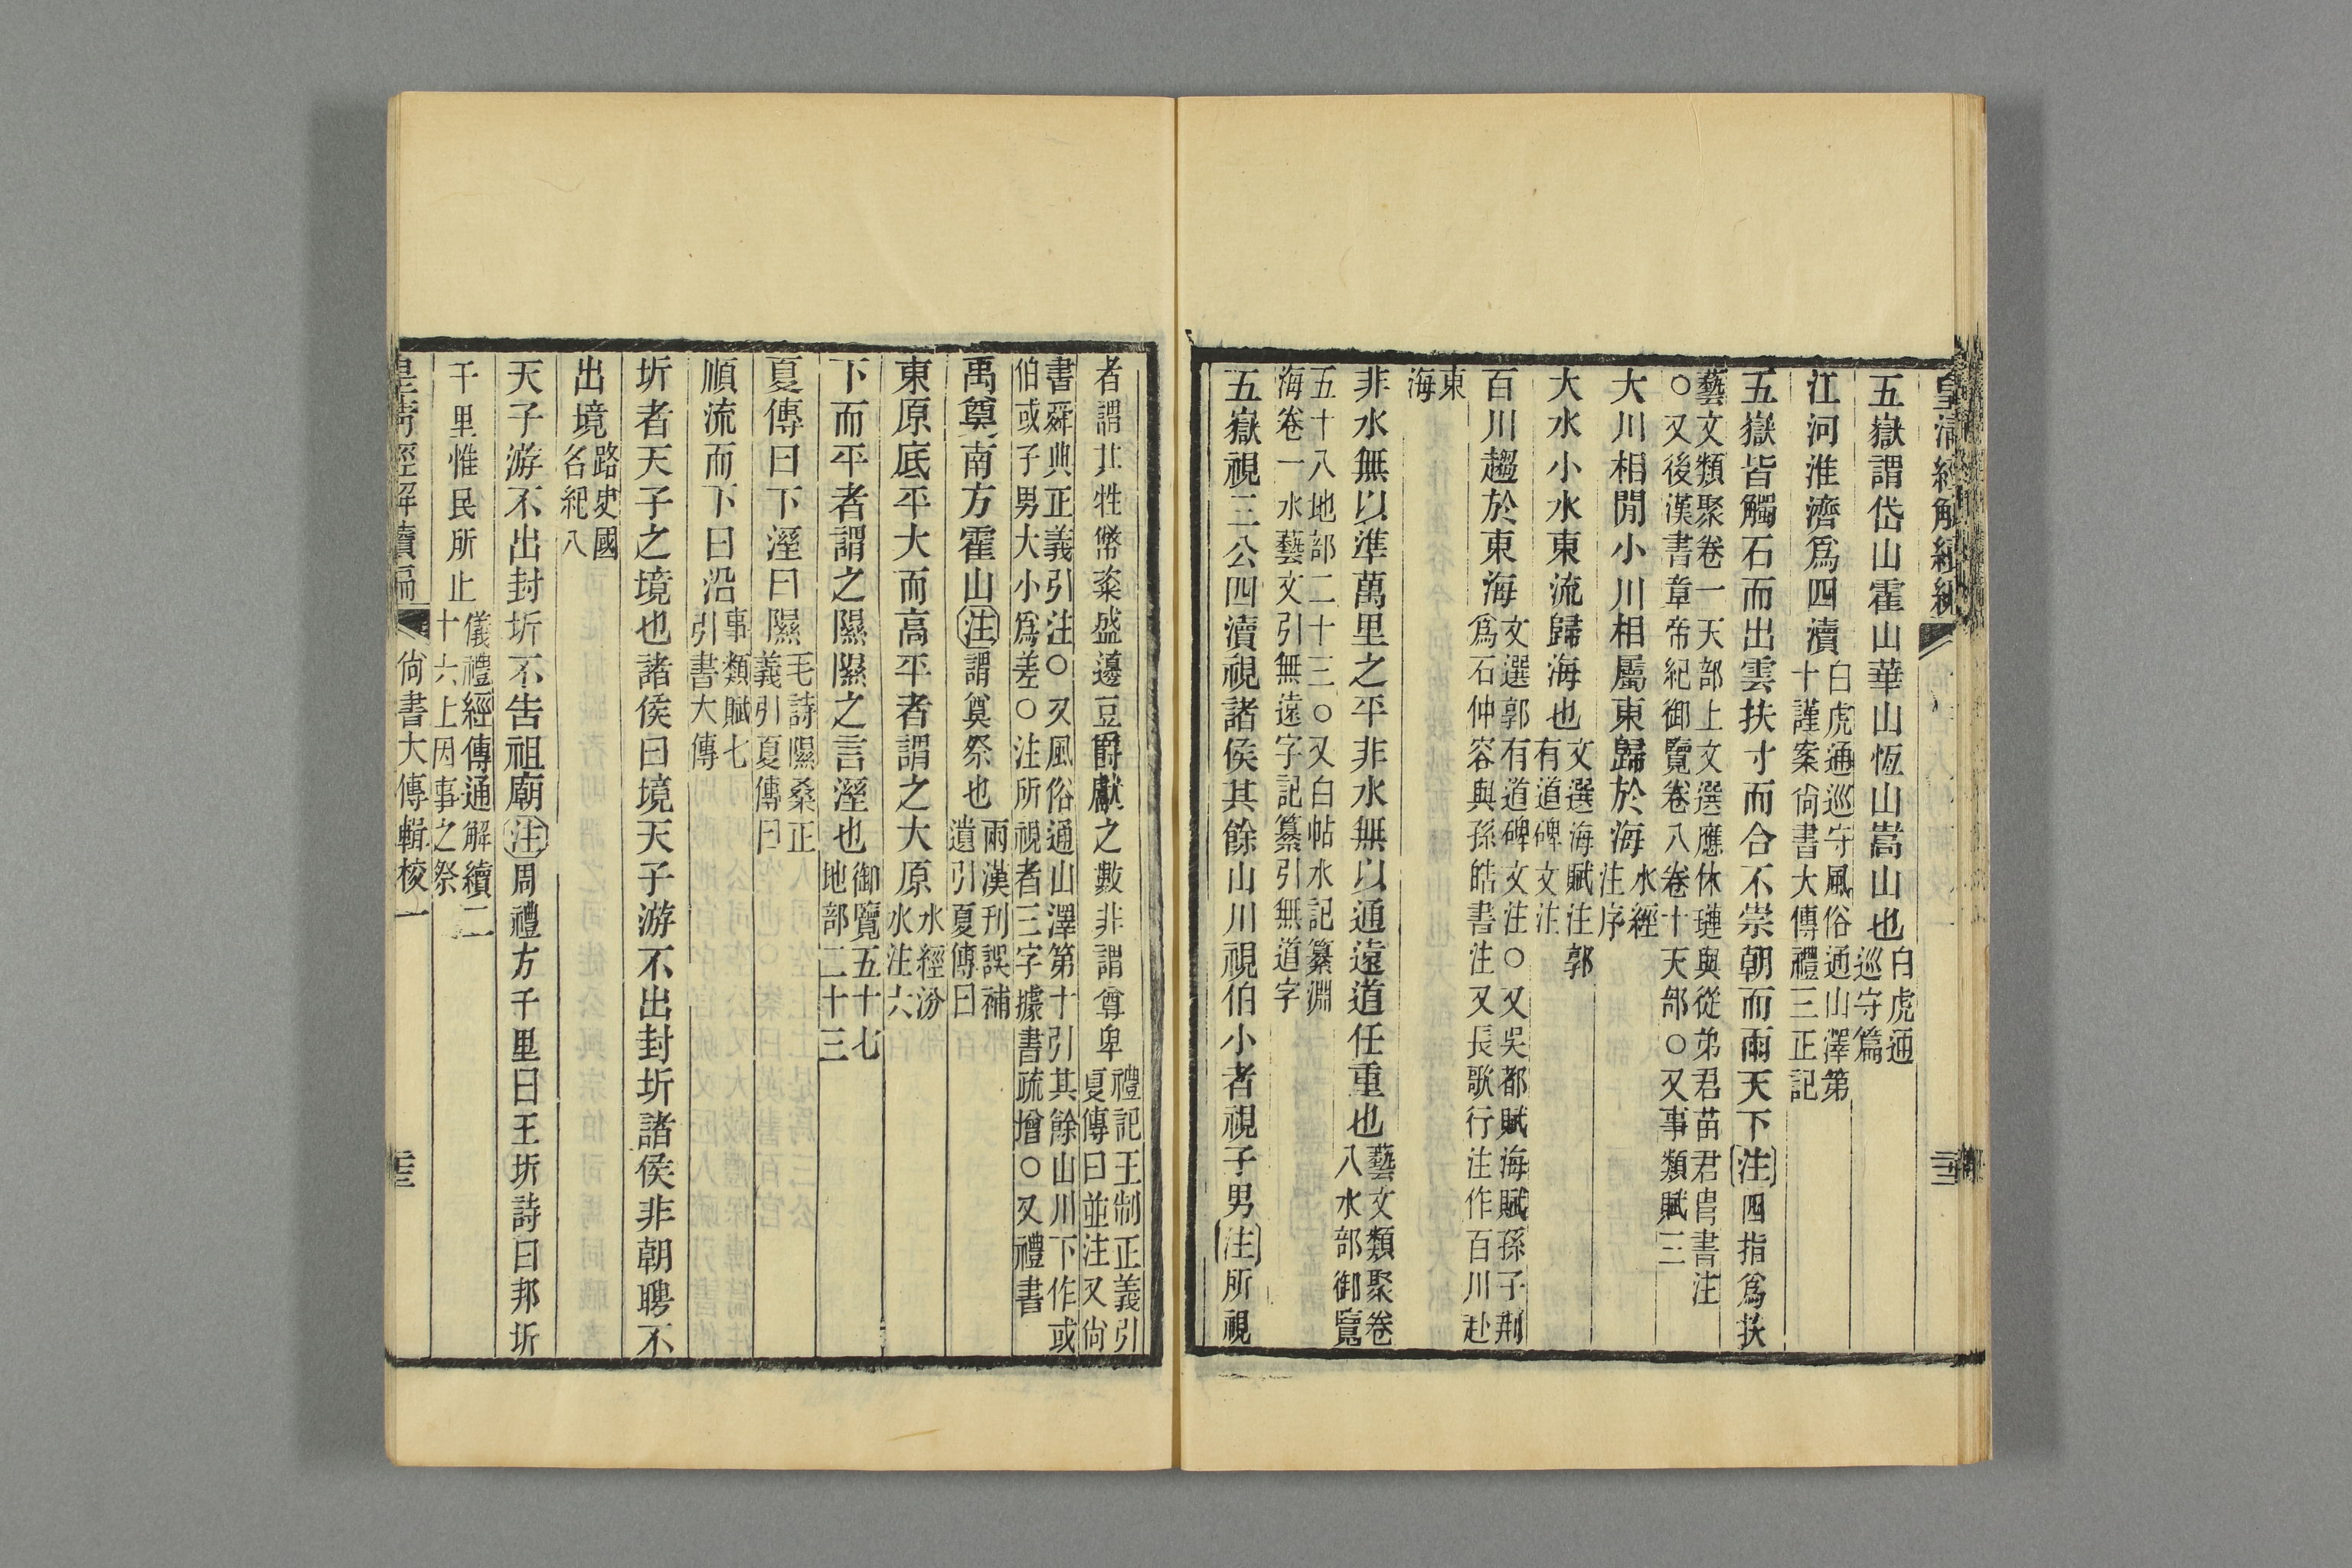 皇清經解續編
五嶽謂岱山霍山華山恆山嵩山也白虎通
巡守篇
江河淮濟爲四瀆白虎通巡守風俗通山澤第
十謹案尙書大傳禮三正記
五嶽皆觸石而出雲扶寸而合不崇朝而雨天下注四指爲扶
藝文類聚卷一天部上文選應休璉與從弟君苗君胄書注
○又後漢書章帝紀御覽卷八卷十天部○又事類賦三
大川相閒小川相屬東歸於海水經
注序
大水小水東流歸海也文選海賦注郭
有道碑文注
百川趨於東海文選郭有道碑文注○又吳都賦海賦孫子荆
爲石仲容與孫皓書注又長歌行注作百川赴
東
海
非水無以準萬里之平非水無以通遠道任重也藝文類聚卷
八水部御覽
五十八地部二十三○又白帖水記纂淵
海卷一水藝文引無遠字記纂引無道字
五嶽視三公四瀆視諸侯其餘山川視伯小者視子男注所視
者謂其牲幣粢盛籩豆爵獻之數非謂尊卑禮記王制正義引
夏傳曰並注又尙
書舜典正義引注○又風俗通山澤第十引其餘山川下作或
伯或子男大小爲差○注所視者三字據書疏增○又禮書
禹奠南方霍山注謂奠祭也兩漢刊誤補
遺引夏傳曰
東原底平大而高平者謂之大原水經汾
水注六
下而平者謂之隰隰之言溼也御覽五十七
地部二十三
夏傳曰下溼曰隰毛詩隰桑正
義引夏傳曰
順流而下曰沿事類賦七
引書大傳
圻者天子之境也諸侯曰境天子游不出封圻諸侯非朝聘不
出境路史國
名紀八
天子游不出封圻不告祖廟注周禮方千里曰王圻詩曰邦圻
千里惟民所止儀禮經傳通解續二
十六上因事之祭
皇清經解續編 尙書大傳輯校一